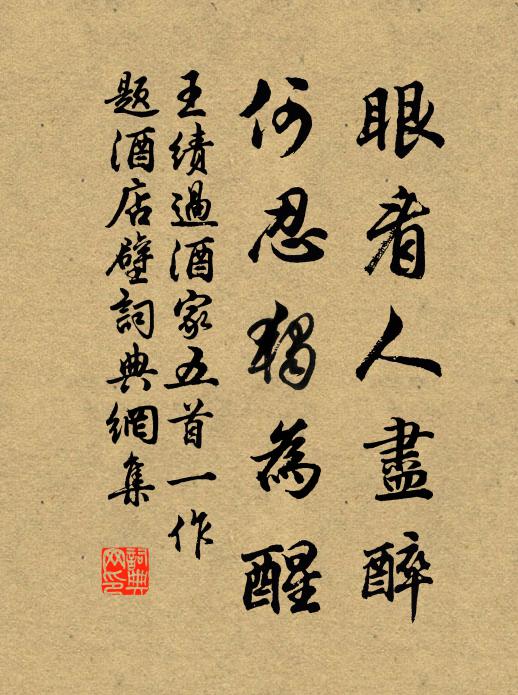 眼看人盡醉
何忍獨為醒
王績過酒家五首一作
題酒店壁詞典網集
詞典網印